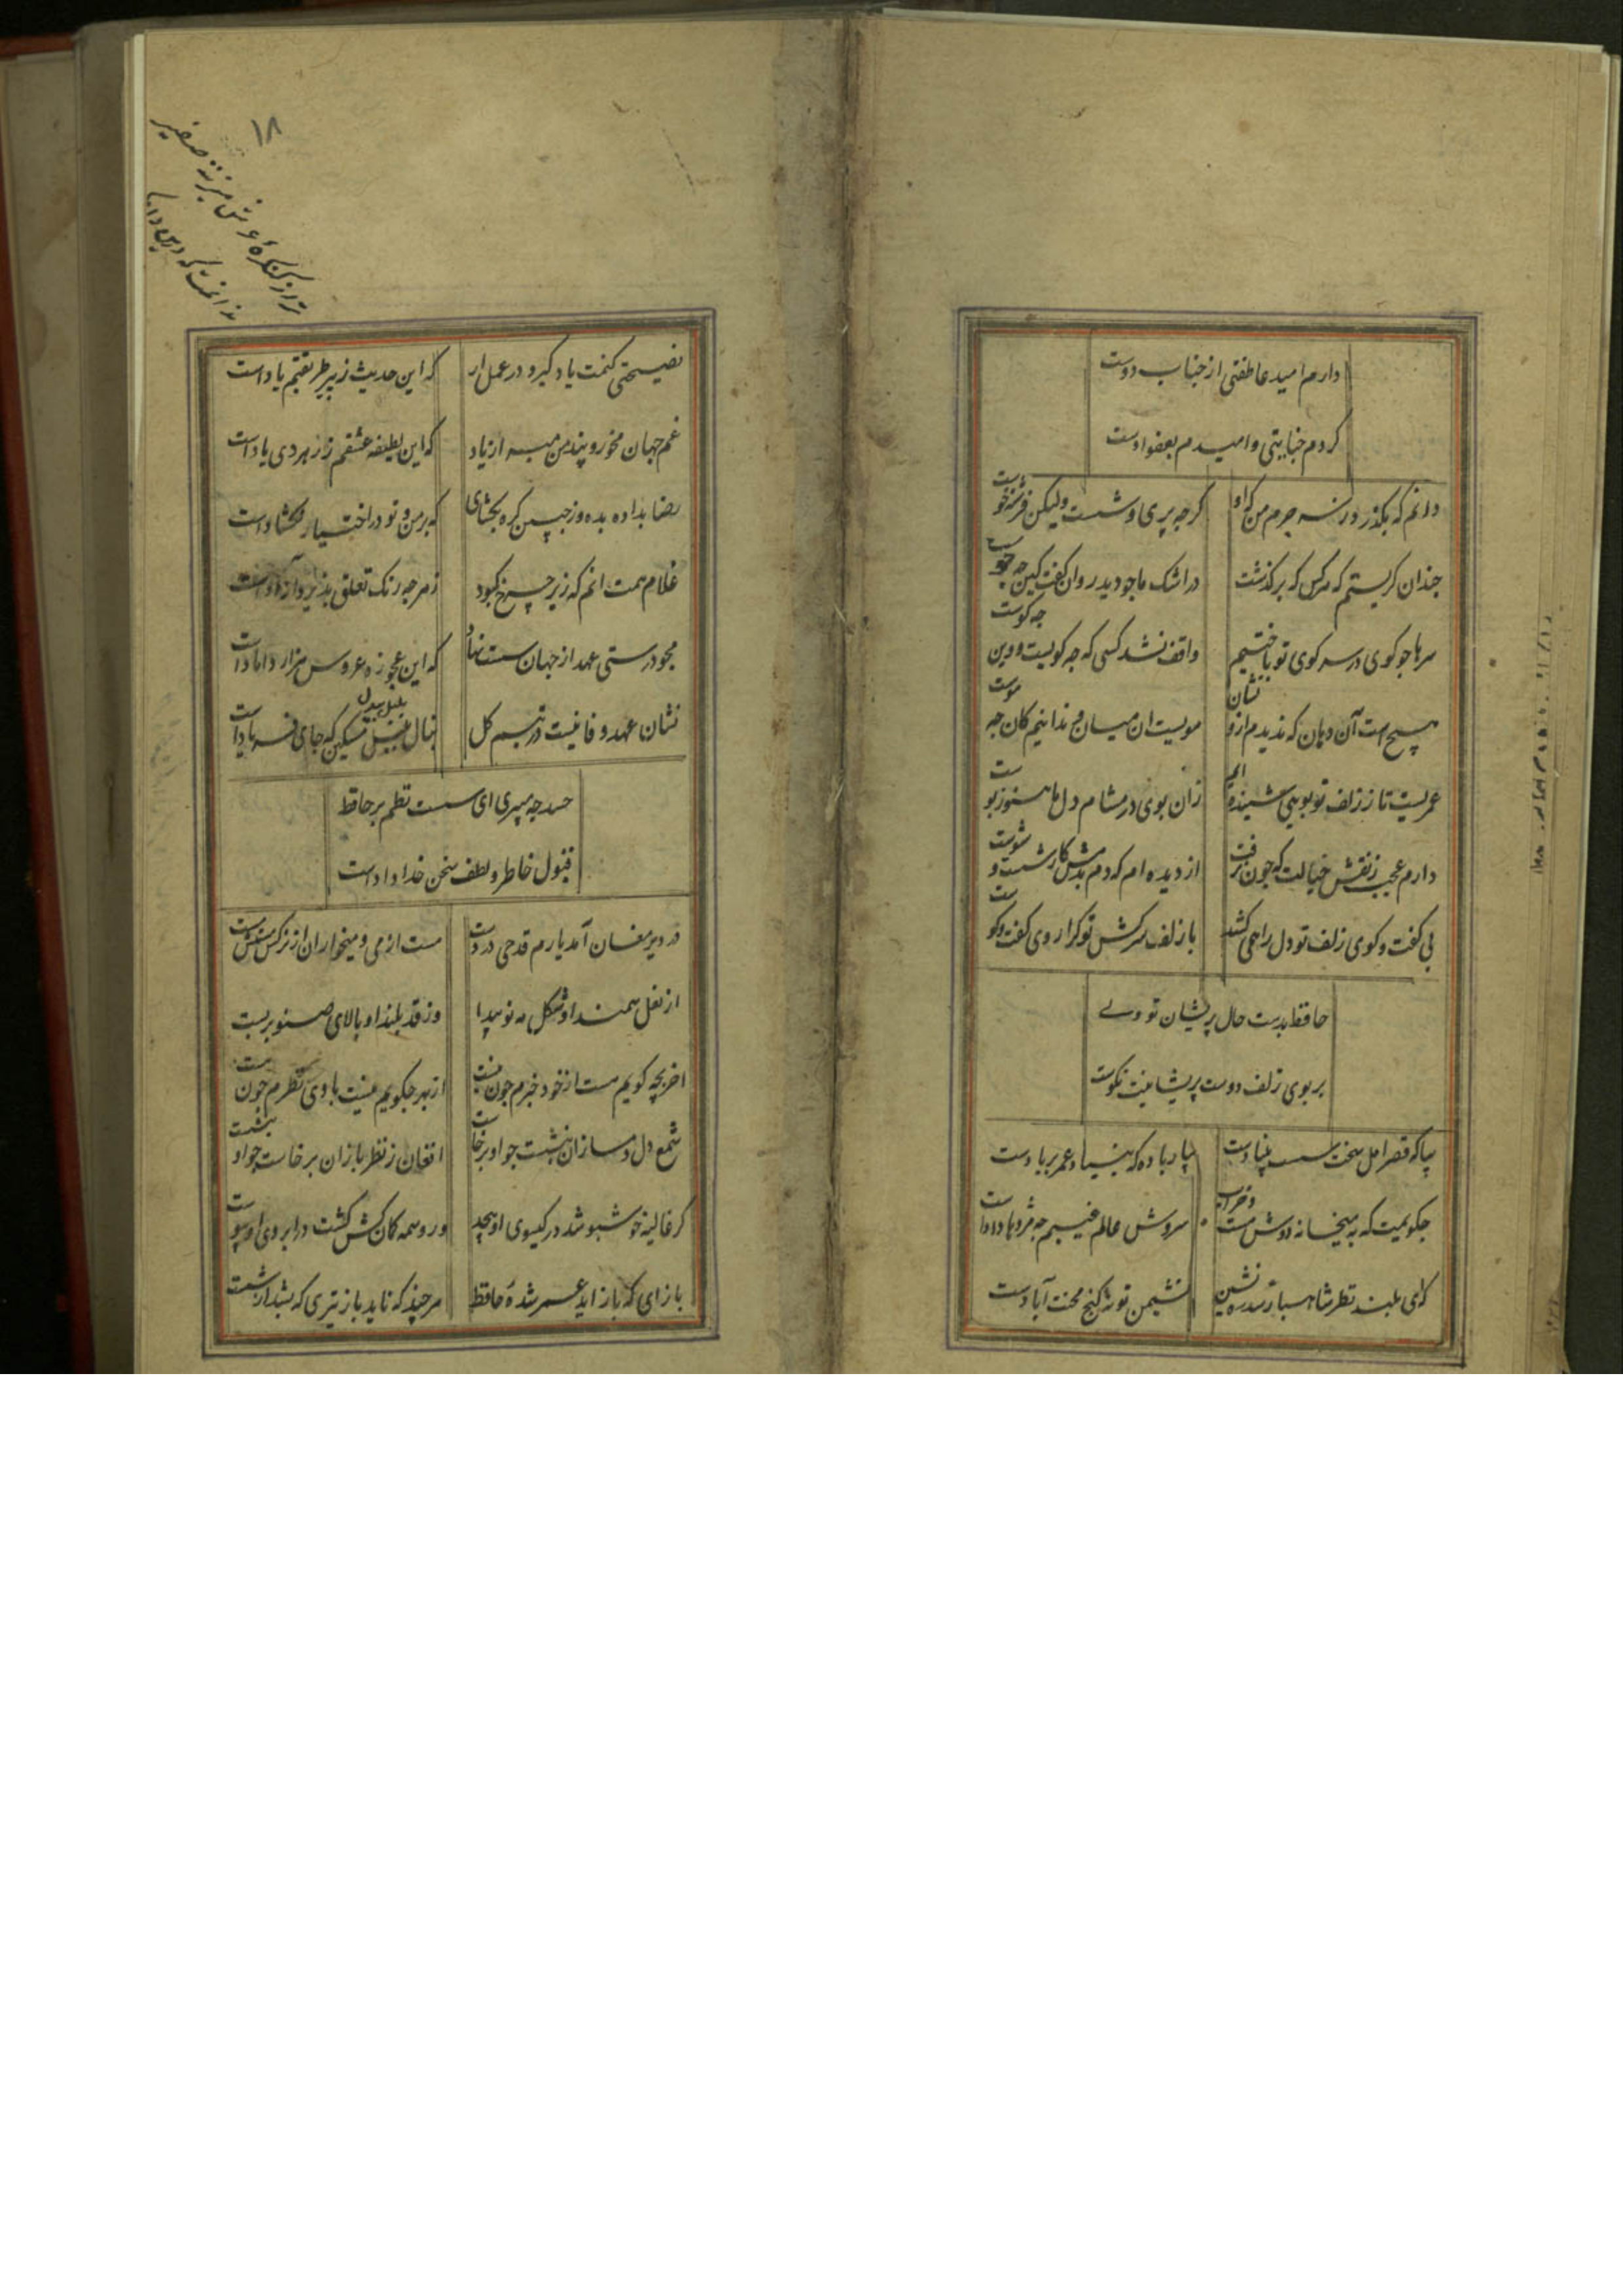 دارم امید عاطفتی از جناب دوست
کردم جنایتی و امیدم بعفو اوست
دانم که بگذرد ز سر جرم من که او
کرچه پری وشست ولیکن فرشته خوست
چندان کریستم که هرکس که برگذشت
در اشک ما چو دید روان گفت کین چه جوست
سرها چو کوی در سر کوی تو باختیم
واقف نشد کسی که چه کویست و وین چه کوست
هیچ است آن دهان که ندیدم ازو نشان
مویست ان میان و ندانیم کان چه موست
عمریست تا ز زلف تو بویی شنیده ایم
زان بوی در مشام دل ما هنوز بوست
دارم عجب ز نقش خیالت که چون نرفت
از دیده ام که دم بدمش کار شست و شوست
بی گفت و کوی زلف تو دل را همی کشد
با زلف سرکش تو کرا روی گفت و کوست
حافظ بدست حال پریشان تو ولے
بر بوی زلف دوست پریشانیت نکوست
بیا که قصر امل سخت سست بنیادست
بیار باده که بنیاد عمر بر بادست
چکویمت که به میخانه دوش مست و خراب
سروش عالم غیبم چه مژدها دادست
که ای بلند نظر شاهباز سدره نشین
نشیمن تو نه کنج محنت آبادست
۱۸
ترا ز کنکره عرش میزنند صفیر
ندانمت که درین
نصیحتی کنمت یاد کیر و در عمل ار
که این حدیث ز پیر طریقتم یاداست
غم جهان مخور و پند من مبر از یاد
که این لطیفه عشقم ز رهروی یاداست
رضا بداده بده وز جبین کره بکشای
که بر من و تو در اختیار نکشاداست
غلام همت انم که زیر چرخ کبود
ز هر چه رنک تعلق پذیرد آزاداست
مجو درستی عهد از جهان سست نهاد
که این عجوزه عروس هزار داماداست
نشان عهد و وفا نیست در تبسم کل
بنال بلبل مسکین که جای فریاداست
بلبل بیدل
حسد چه میبری ای سست نظم بر حافظ
قبول خاطر و لطف سخن خداداداست
در دیر مغان آمد یارم قدحی در دست
مست از می و میخواران از نرکس مستش مست
از نعل سمند او شکل مه نو پیدا
وز قد بلند او بالای صنوبر پست
اخر بچه کویم هست از خود خبرم چون نیست
از بهر چکویم نیست با وی نظرم چون هست
شمع دل دمسازان بنشست چو او برخاست
افغان ز نظربازان برخاست چو او بنشست
کر غالیه خوشبو شد در کیسوی او پیچید
ور وسمه کمان کش کشت در ابروی او پیوست
بازای که باز اید عمر شدهٔ حافظ
هر چند که ناید باز تیری که بشد از شست